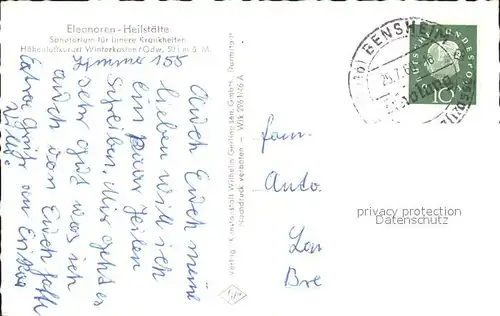 Eleonoren - Heilstätte
Sanatorium für innere Krankheiten
Höhenluftkurort Winterkasten/Odw. 501 m ü. M.
Zimmer 155
Auch Euch meine
Lieben will ich
ein paar Zeilen
schreiben. Mir geht es
sehr gut was ich
auch von Euch hoffe
Extra Grüße an Erika
Verlag: Kunstanstalt Wilhelm Gerling sen. GmbH., Darmstadt
Nachdruck verboten - Wik 2961/46 A
BENSHEIM
DEUTSCHE BUNDESPOST
10
Fam.
Auto.
Lan
Bre
privacy protection
www.oldthing.de